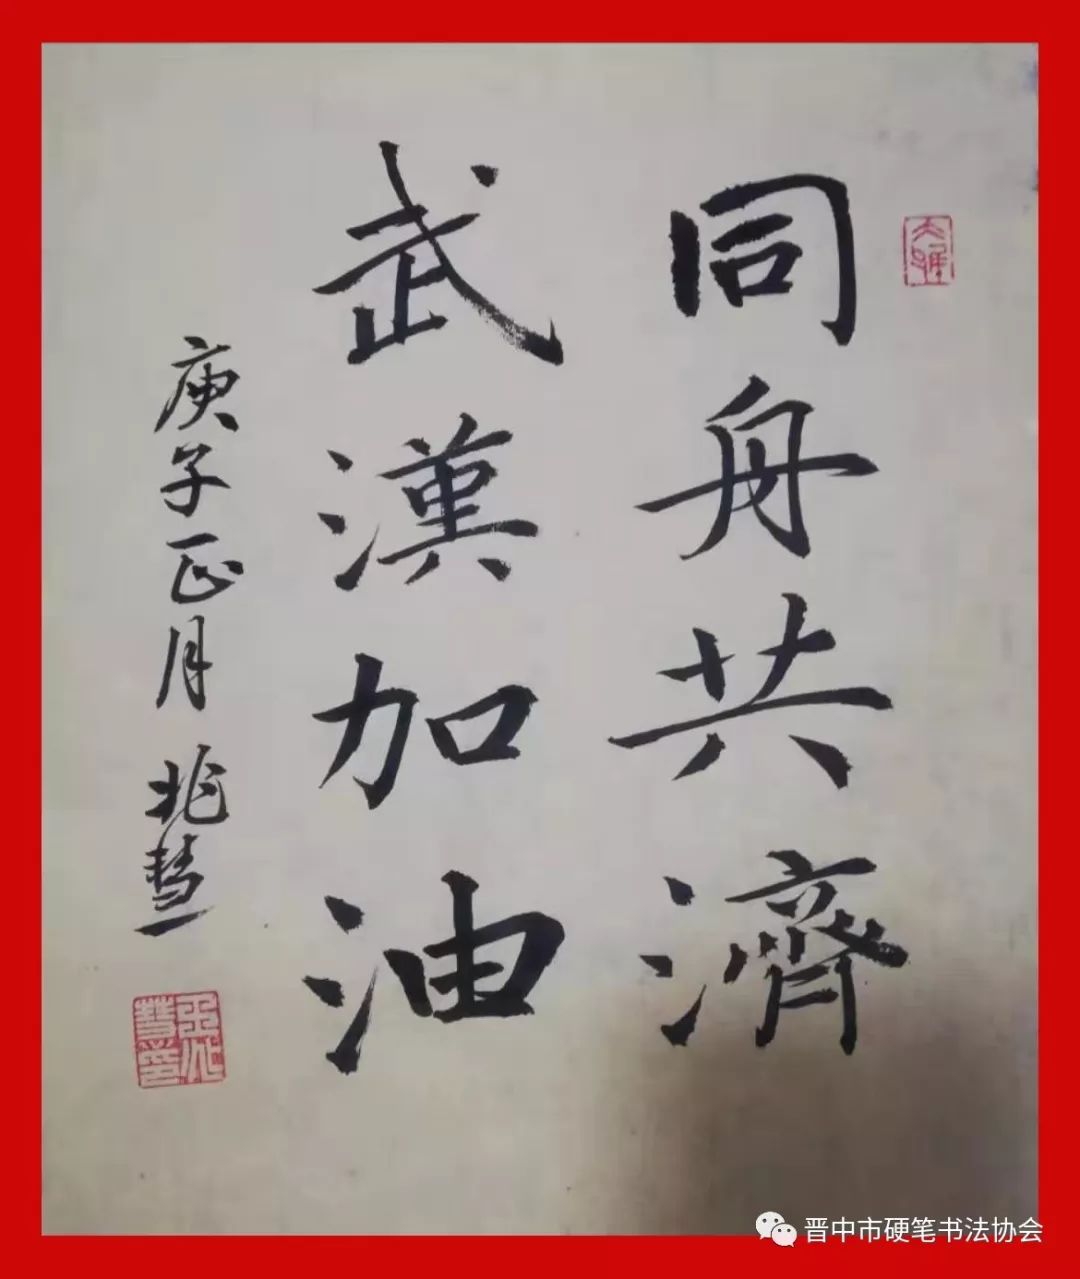 同舟共濟
武漢加油
庚子正月 兆慧
晋中市硬笔书法协会